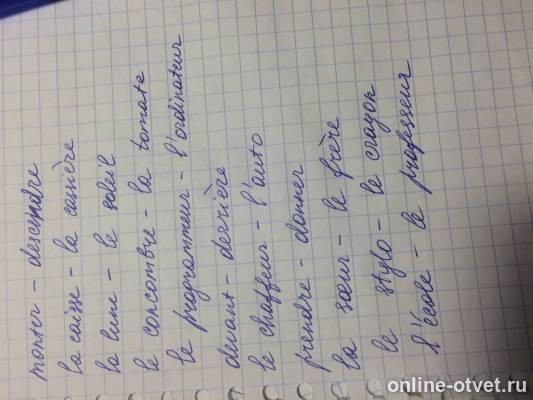 monter - descendre
la caisse - la caissière
la lune - le soleil
le concombre - la tomate
le programmeur - l'ordinateur
devant - derrière
le chauffeur - l'auto
prendre - donner
la sœur - le frère
le stylo - le crayon
l'école - le professeur
online-otvet.ru